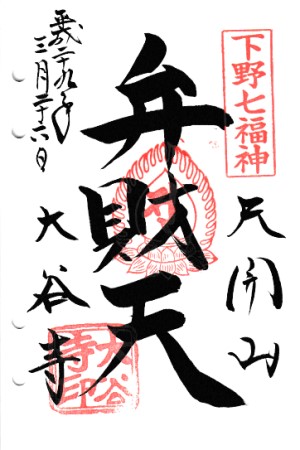 下野七福神
天開山
弁財天
大谷寺
平成二十九年
三月二十六日
大谷
寺印